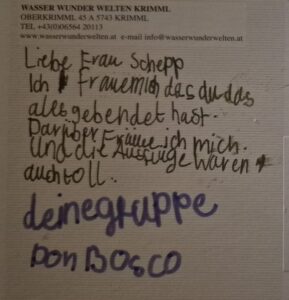 WASSER WUNDER WELTEN KRIMML
OBERKRIMML 45 A 5743 KRIMML
TEL +43(0)06564 20113
www.wasserwunderwelten.at e-mail info@wasserwunderwelten.at
Liebe Frau Schepp
Ich Frauemich das du das
alesgebendet hast.
Darüber Fraue ich mich.
Und die Ausfüge waren
auch toll.
deinegruppe
Don BOSCO